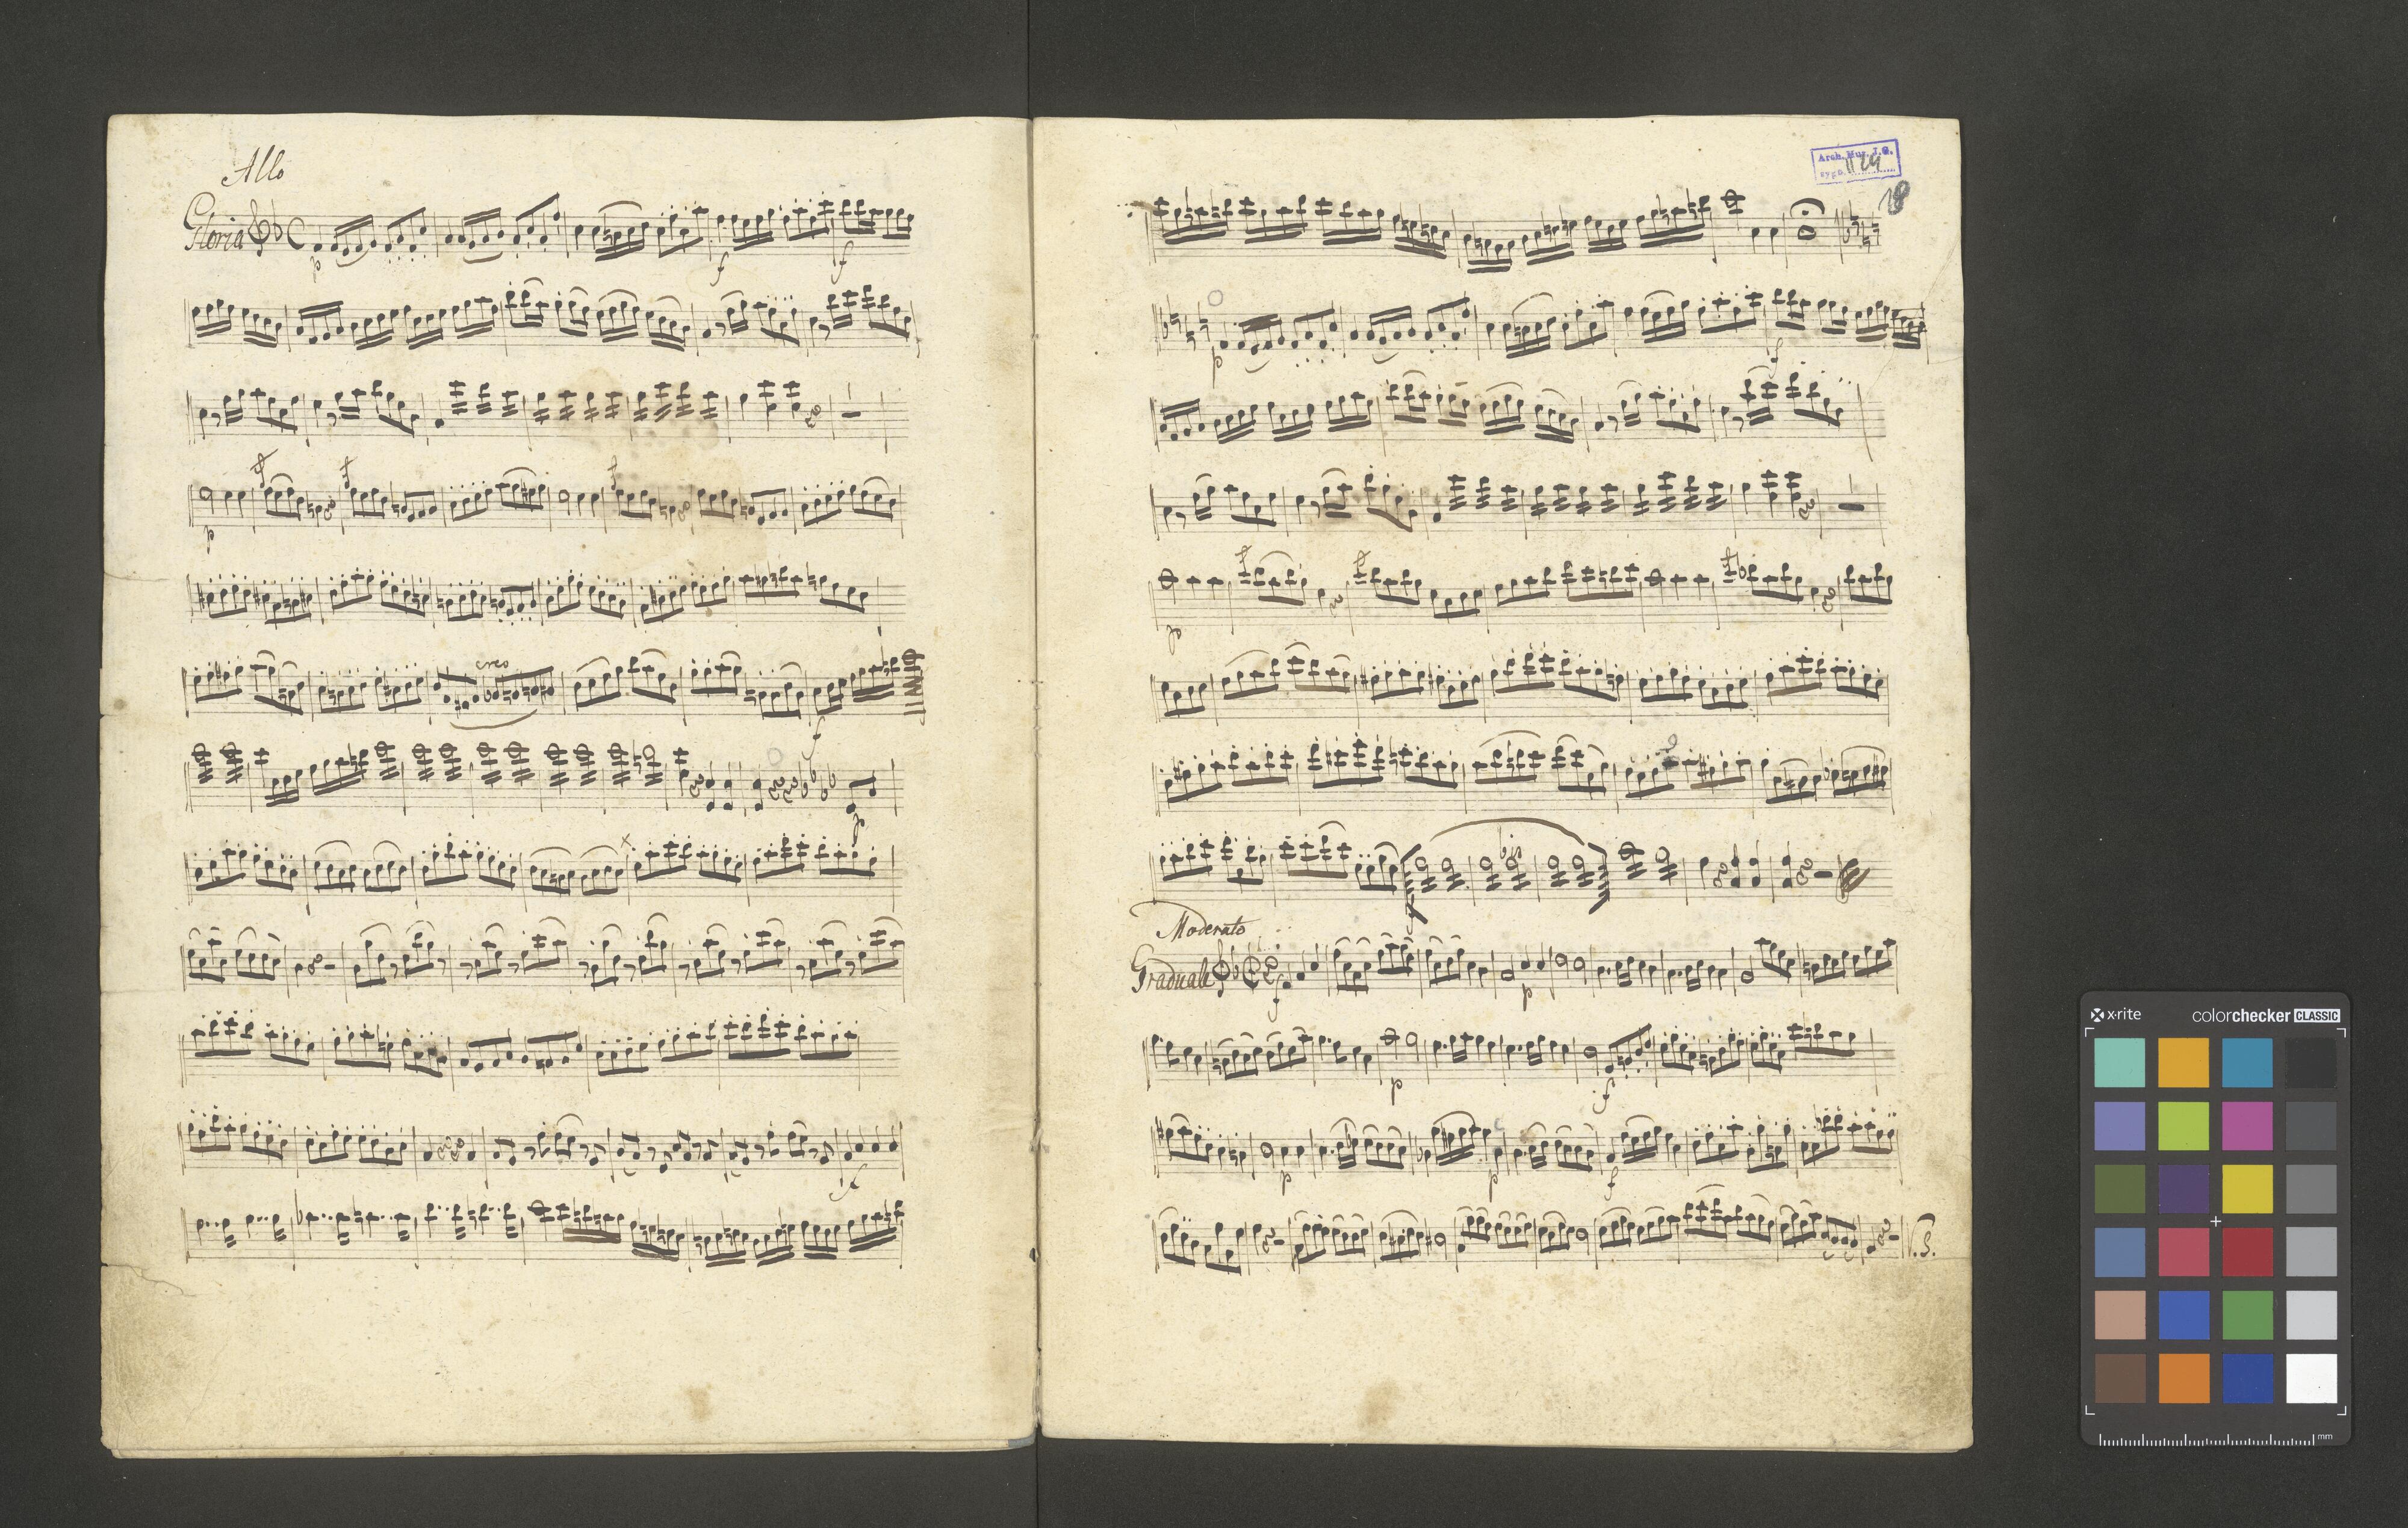 Allo
Gloria
p
f
f
p
cres
f
p
f
Arch. Mus. J.G.
sygn. 1124
18
p
f
p
bis
f
Moderato
Graduale
f
p
p
f
p
p
f
V.S.
x·rite
colorchecker CLASSIC
mm